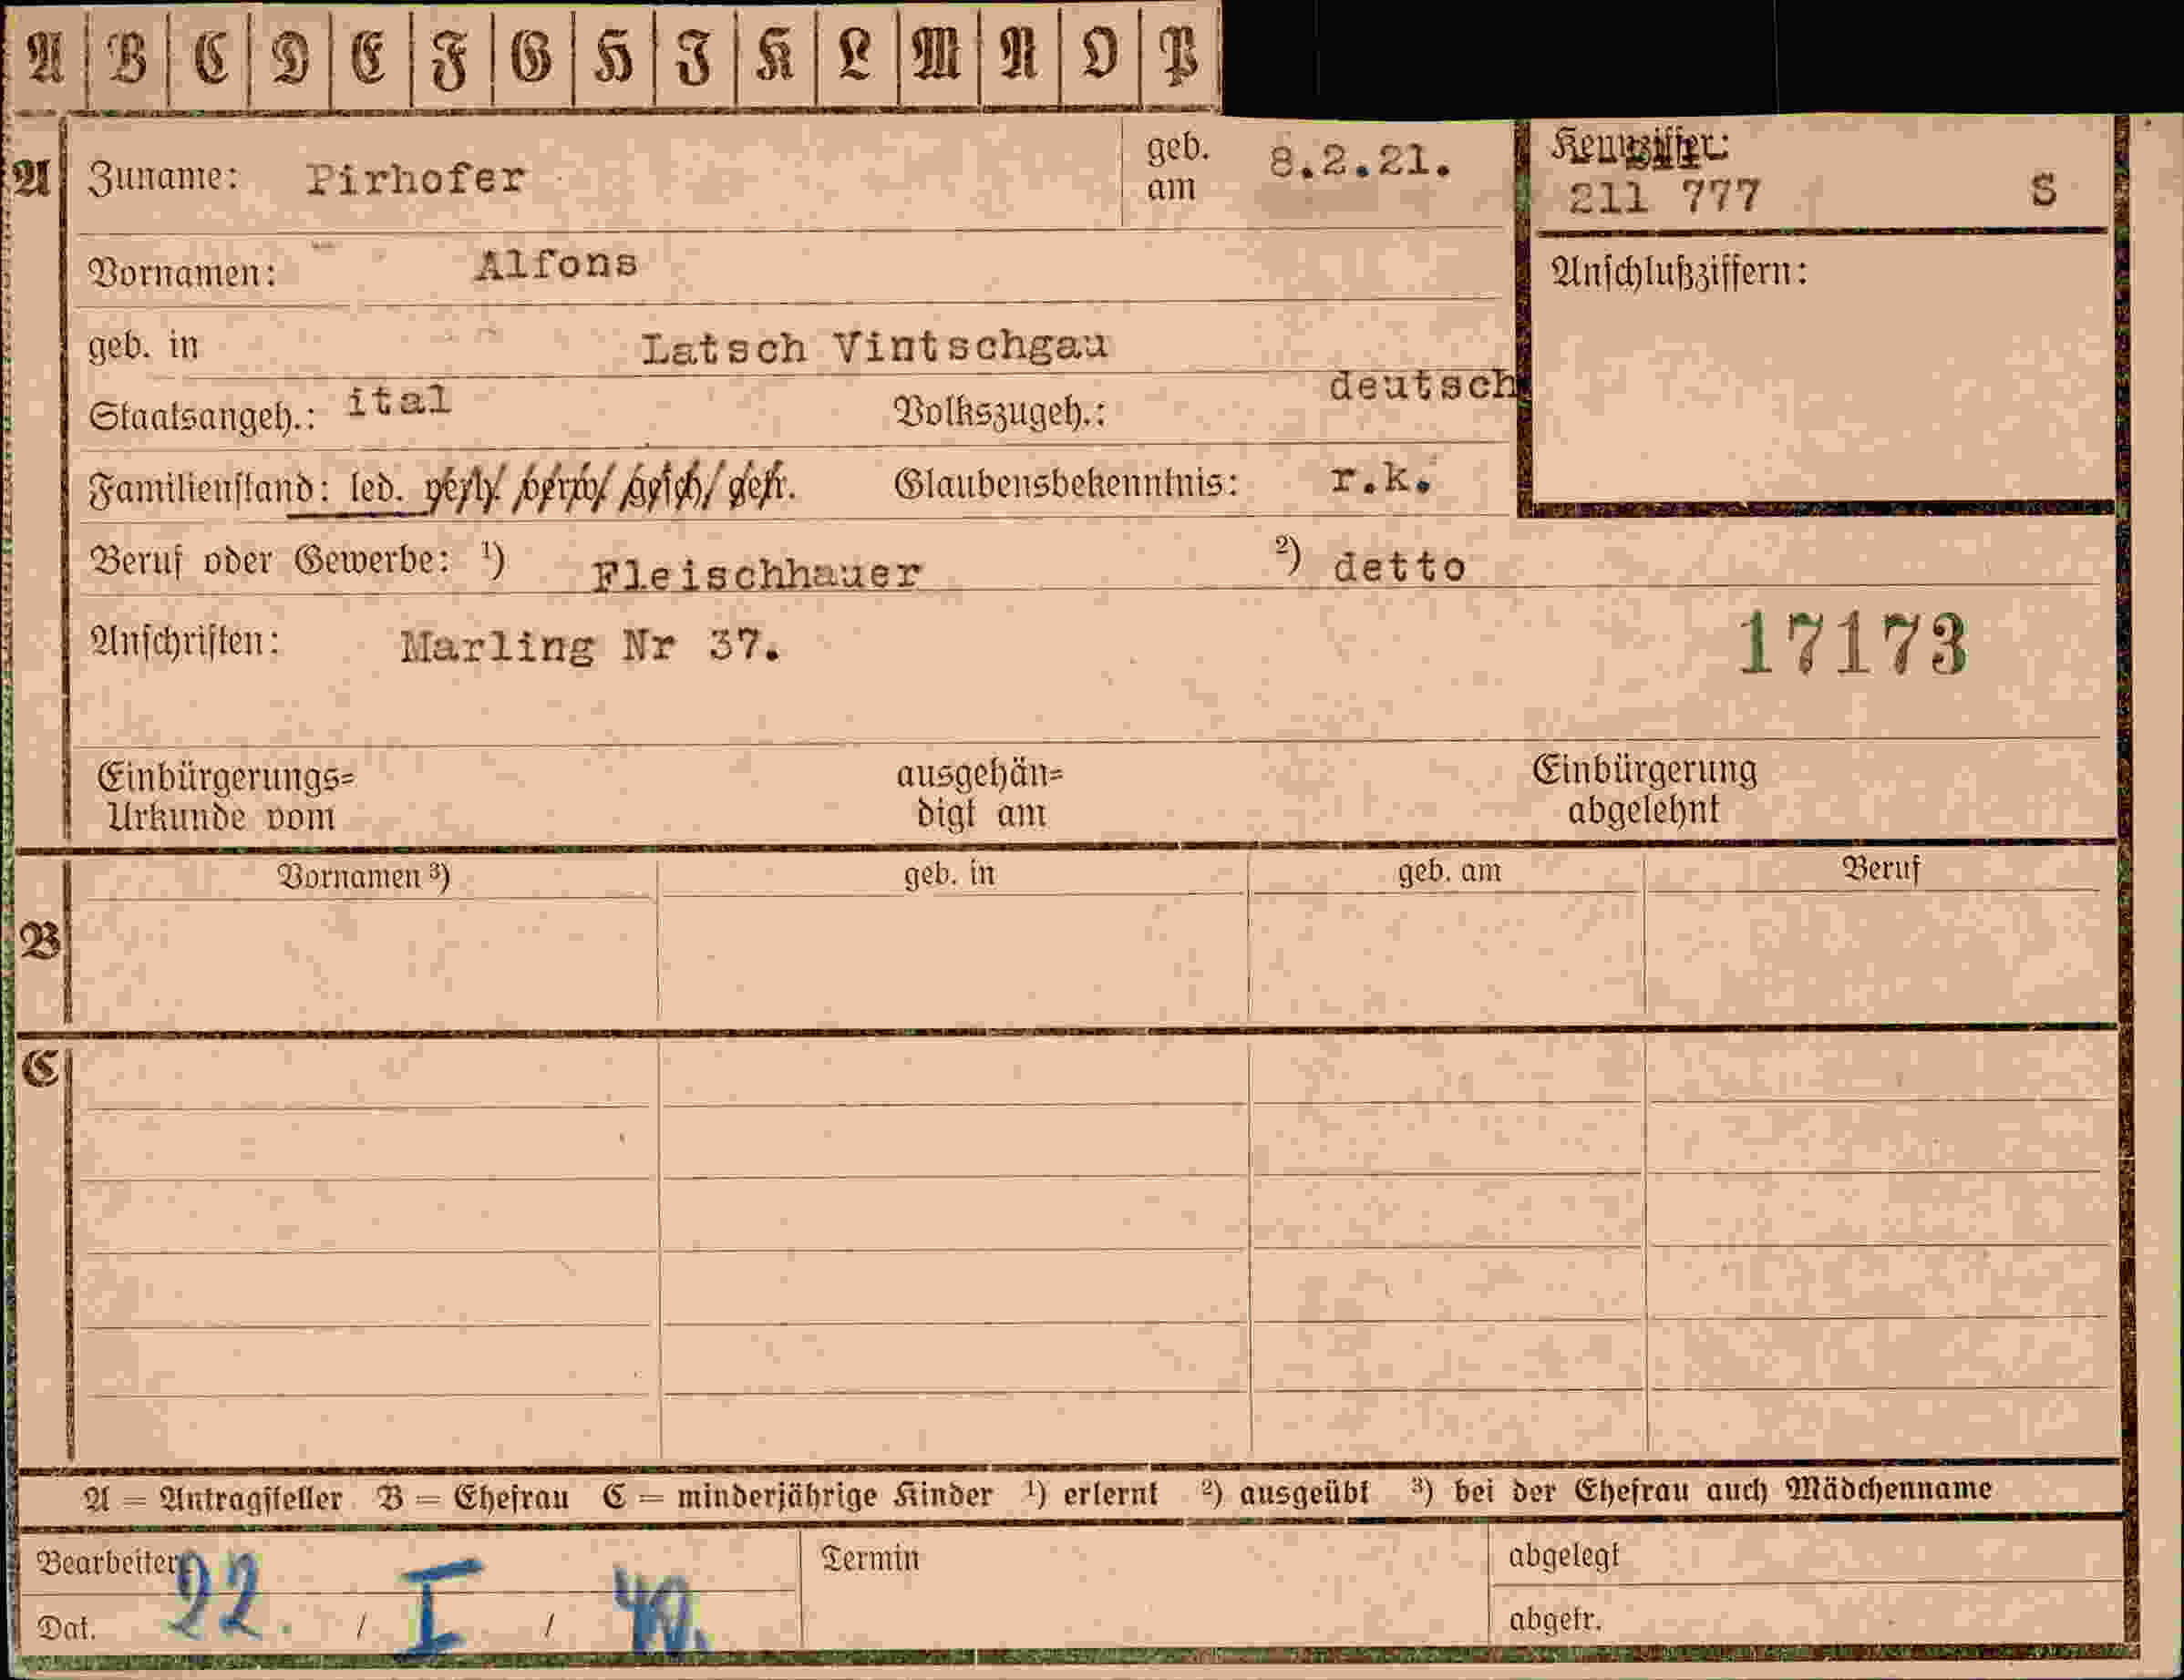 A B C D E F G H I K L M N O P
A Zuname: Pirhofer geb. am 8.2.21. Kennziffer:
211 777 S
Vornamen: Alfons Anschlußziffern:
geb. in Latsch Vintschgau
Staatsangeh.: ital Volkszugeh.: deutsch
Familienstand: led. verh. verw. gesch. getr. Glaubensbekenntnis: r.k.
Beruf oder Gewerbe: ¹) Fleischhauer ²) detto
Anschriften: Marling Nr 37. 17173
Einbürgerungs= ausgehän= Einbürgerung
Urkunde vom digt am abgelehnt
Vornamen ³) geb. in geb. am Beruf
B
C
A = Antragsteller B = Ehefrau C = minderjährige Kinder ¹) erlernt ²) ausgeübt ³) bei der Ehefrau auch Mädchenname
Bearbeiter Termin abgelegt
Dat. 22. / I / 40. abgetr.